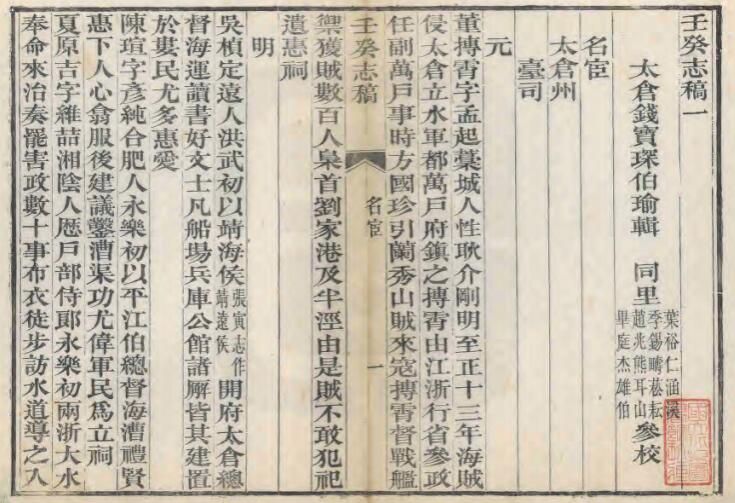 壬癸志稿一
太倉錢寶琛伯瑜輯　同里
葉裕仁涵溪
季錫疇菘耘
趙兆熊耳山
畢庭杰雄伯
參校
名宦
太倉州
臺司
元
董摶霄字孟起藁城人性耿介剛明至正十三年海賊
侵太倉立水軍都萬戶府鎮之摶霄由江浙行省參政
任副萬戶事時方國珍引蘭秀山賊來寇摶霄督戰艦
壬癸志稿　名宦　一
禦獲賊數百人梟首劉家港及半涇由是賊不敢犯祀
遺惠祠
明
吳楨定遠人洪武初以靖海侯張寅志作靖遠侯開府太倉總
督海運讀書好文士凡船場兵庫公館諸廨皆其建置
於婁民尤多惠愛
陳瑄字彥純合肥人永樂初以平江伯總督海漕禮賢
惠下人心翕服後建議鑿漕渠功尤偉軍民爲立祠
夏原吉字維喆湘陰人歷戶部侍郎永樂初兩浙大水
奉命來治奏罷害政數十事布衣徒步訪水道導之入